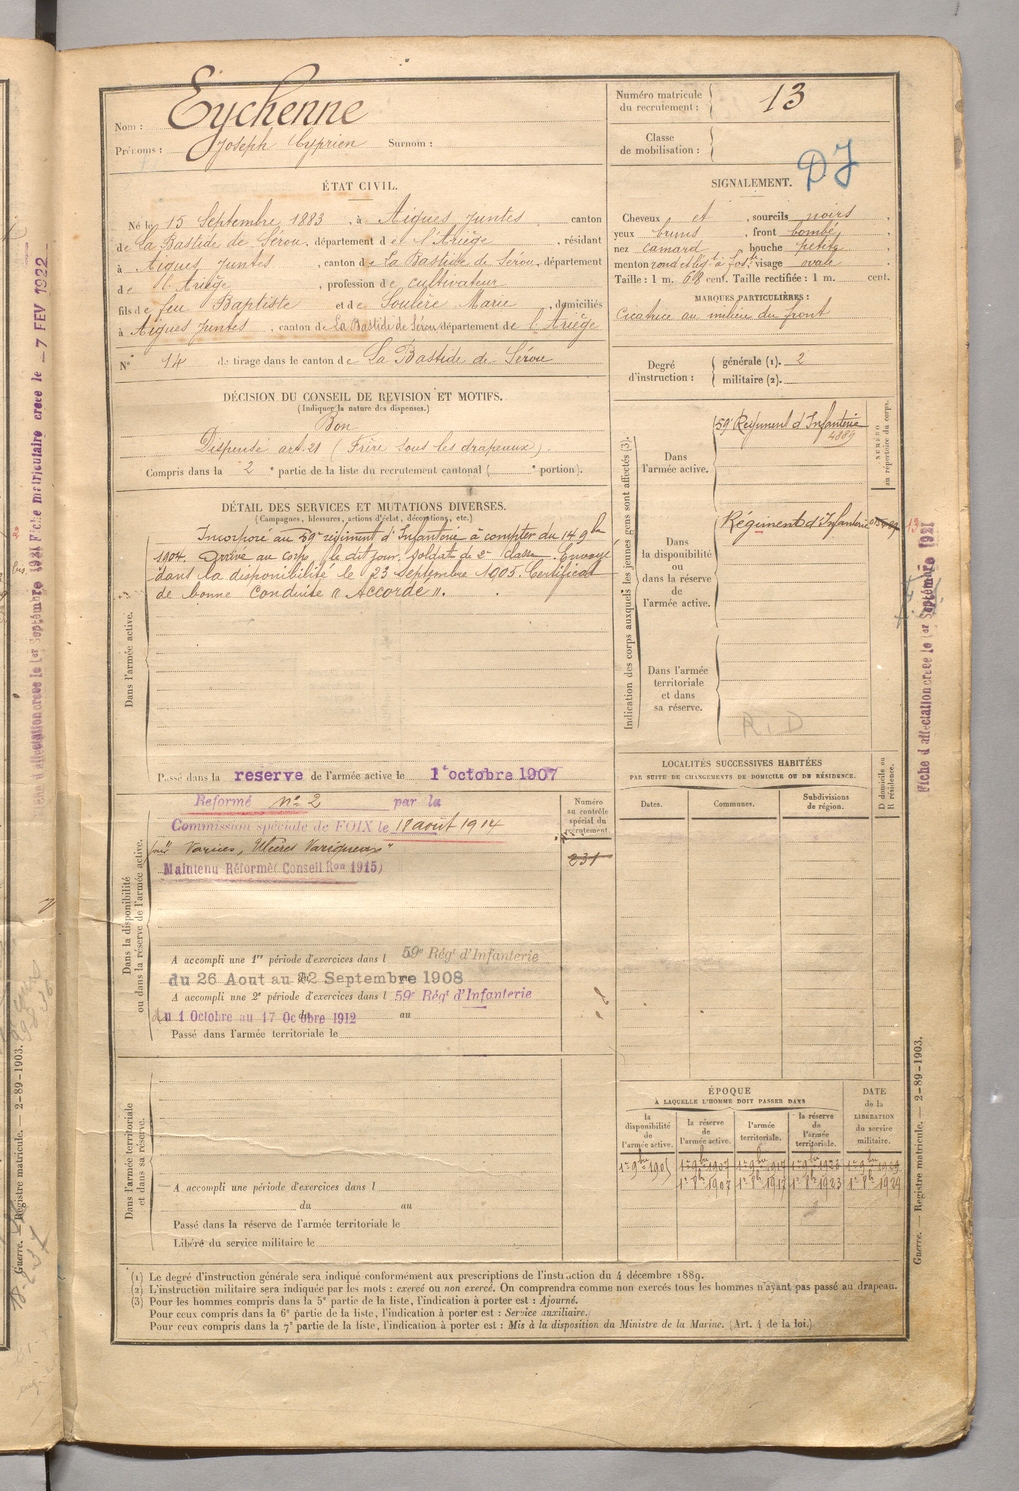 Nom : Eychenne
Prénoms : Joseph Cyprien Surnom :
ÉTAT CIVIL.
Né le 15 Septembre 1883, à Aigues Juntes canton
de La Bastide de Sérou, département de l'Ariège, résidant
à Aigues Juntes, canton de La Bastide de Sérou, département
de l'Ariège, profession de cultivateur
fils de feu Baptiste et de Soulère Marie, domiciliés
à Aigues Juntes, canton de La Bastide de Sérou, département de l'Ariège
N° 14 de tirage dans le canton de La Bastide de Sérou
DÉCISION DU CONSEIL DE REVISION ET MOTIFS.
(Indiquer la nature des dispenses.)
Bon
Dispensé art. 21 (Frère sous les drapeaux).
Compris dans la 2e partie de la liste du recrutement cantonal ( e portion).
DÉTAIL DES SERVICES ET MUTATIONS DIVERSES.
(Campagnes, blessures, actions d'éclat, décorations, etc.)
Dans l'armée active.
Incorporé au 59e régiment d'Infanterie à compter du 14 9bre
1904. Arrivé au corps le dit jour. Soldat de 2e classe. Envoyé
dans la disponibilité le 23 Septembre 1905. Certificat
de bonne conduite « Accordé ».
Passé dans la reserve de l'armée active le 1er octobre 1907
Dans la disponibilité
ou dans la réserve de l'armée active.
Reformé n° 2 par la
Commission spéciale de FOIX le 18 août 1914
pour Varices, Ulcères Variqueux"
Maintenu Réformé (Conseil Ron 1915)
Numéro
au contrôle
spécial du
recrutement.
231
A accompli une 1re période d'exercices dans l 59e Régt d'Infanterie
du 26 Aout au 22 Septembre 1908
A accompli une 2e période d'exercices dans l 59e Régt d'Infanterie
du 1 Octobre au 17 Octobre 1912 au
Passé dans l'armée territoriale le
Dans l'armée territoriale
et dans sa réserve.
A accompli une période d'exercices dans l
du au
Passé dans la réserve de l'armée territoriale le
Libéré du service militaire le
Numéro matricule
du recrutement : 13
Classe
de mobilisation :
DJ
SIGNALEMENT.
Cheveux et, sourcils noirs,
yeux bruns, front bombé,
nez camard, bouche petite,
menton rond et lég. à fos.te visage ovale.
Taille : 1 m. 68 cent. Taille rectifiée : 1 m. cent.
MARQUES PARTICULIÈRES :
Cicatrice au milieu du front
Degré
d'instruction :
générale (1). 2
militaire (2).
Indication des corps auxquels les jeunes gens sont affectés (3).
NUMÉRO
au répertoire du corps.
Dans
l'armée active.
59e Régiment d'Infanterie
4889
Dans
la disponibilité
ou
dans la réserve
de
l'armée active.
Régiment d'Infanterie
Dans l'armée
territoriale
et dans
sa réserve.
R. D
LOCALITÉS SUCCESSIVES HABITÉES
PAR SUITE DE CHANGEMENTS DE DOMICILE OU DE RÉSIDENCE.
Dates.
Communes.
Subdivisions
de région.
D domicile ou
R résidence.
ÉPOQUE
À LAQUELLE L'HOMME DOIT PASSER DANS
la
disponibilité
de
l'armée active.
la réserve
de
l'armée active.
l'armée
territoriale.
la réserve
de
l'armée
territoriale.
DATE
de la
LIBÉRATION
du service
militaire.
1er 9bre 1905
1er 8bre 1907 1er 8bre 1917 1er 8bre 1923 1er 8bre 1929
(1) Le degré d'instruction générale sera indiqué conformément aux prescriptions de l'instruction du 4 décembre 1889.
(2) L'instruction militaire sera indiquée par les mots : exercé ou non exercé. On comprendra comme non exercés tous les hommes n'ayant pas passé au drapeau.
(3) Pour les hommes compris dans la 5e partie de la liste, l'indication à porter est : Ajourné.
Pour ceux compris dans la 6e partie de la liste, l'indication à porter est : Service auxiliaire.
Pour ceux compris dans la 7e partie de la liste, l'indication à porter est : Mis à la disposition du Ministre de la Marine. (Art. 4 de la loi.)
Fiche d'affectation créée le 1er Septembre 1921
Guerre. — Registre matricule. — 2-89-1903.
Fiche d'affectation créée le 1er Septembre 1921 Fiche matriculaire créée le - 7 FEV 1922
Guerre. — Registre matricule. — 2-89-1903.